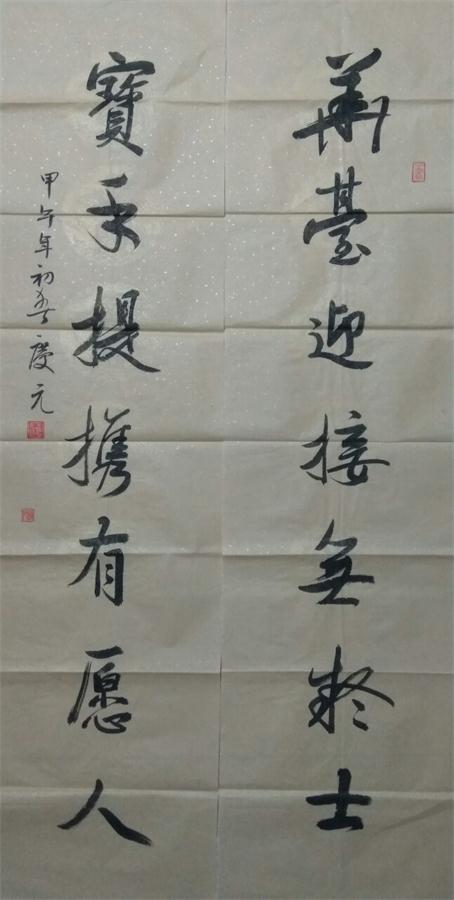 華臺迎接無疑士
寶手提携有愿人
甲午年初春慶元